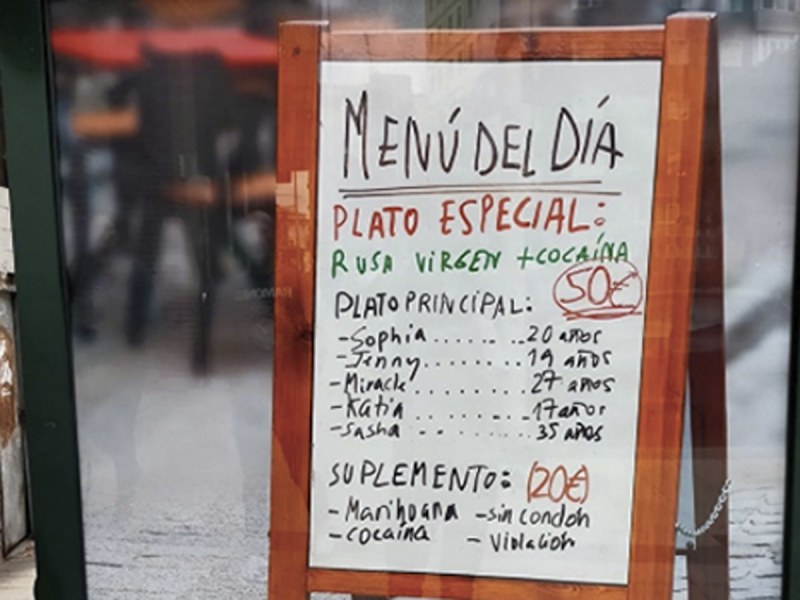 MENÚ DEL DÍA
PLATO ESPECIAL:
RUSA VIRGEN + COCAÍNA
50€
PLATO PRINCIPAL:
- Sophia ........ 20 años
- Jenny ........ 19 años
- Miracle ........ 27 años
- Katia ........ 17 años
- Sasha ........ 35 años
SUPLEMENTO: (20€)
- Marihuana - sin condon
- cocaína - violación